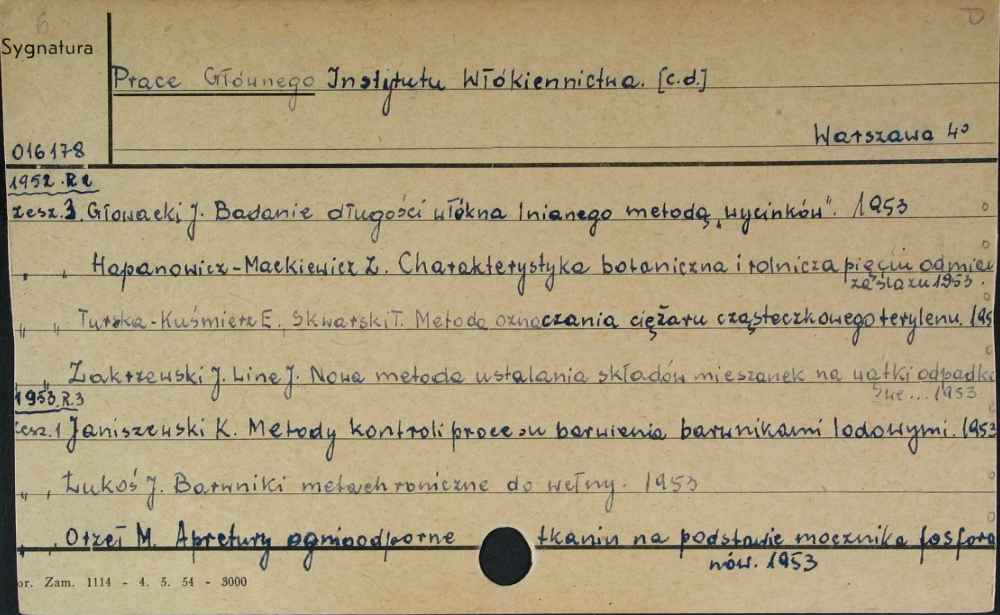 6
Sygnatura
Prace Głównego Instytutu Włókiennictwa. [c.d.]
Warszawa 4°
016178
1952. R.2
zesz.3. Głowacki J. Badanie długości włókna lnianego metodą „wycinków". 1953
" " Hapanowicz-Mackiewicz Z. Charakterystyka botaniczna i rolnicza pięciu odmian
ześlazu 1953.
" " Turska-Kuśmierz E., Skwarski T. Metoda oznaczania ciężaru cząsteczkowego terylenu. 195
" " Zakrzewski J. Line J. Nowa metoda ustalania składów mieszanek na wątki odpadko
we... 1953
1953 R.3
zesz.1 Janiszewski K. Metody kontroli procesu barwienia barwnikami lodowymi. 1953
" " Łukoś J. Barwniki metachroniczne do wełny. 1953
" " Orzeł M. Apretury ognioodporne tkanin na podstawie mocznika fosfora
nów. 1953
or. Zam. 1114 - 4. 5. 54 - 3000